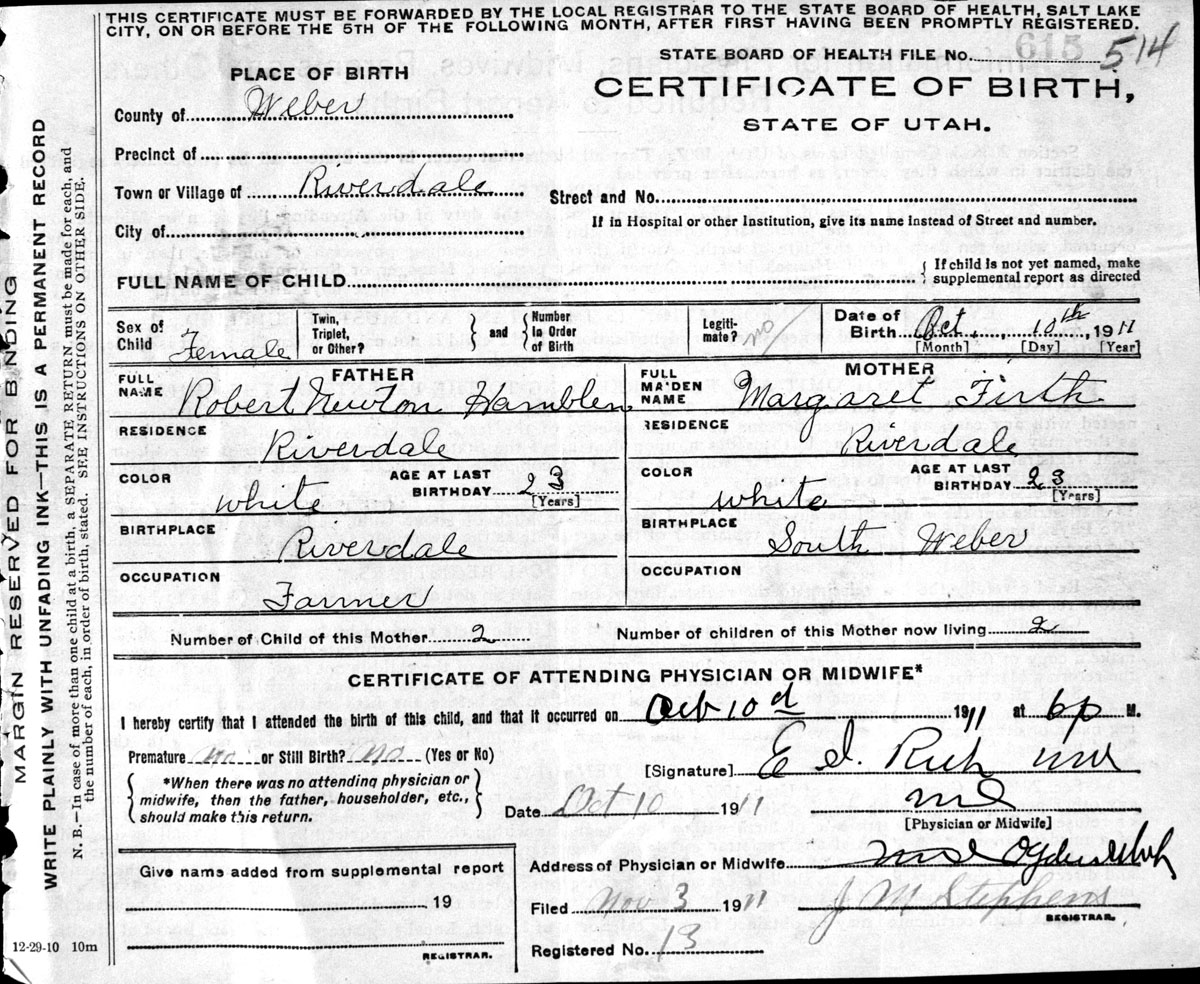 THIS CERTIFICATE MUST BE FORWARDED BY THE LOCAL REGISTRAR TO THE STATE BOARD OF HEALTH, SALT LAKE
CITY, ON OR BEFORE THE 5TH OF THE FOLLOWING MONTH, AFTER FIRST HAVING BEEN PROMPTLY REGISTERED.
STATE BOARD OF HEALTH FILE No. 615 514
PLACE OF BIRTH
CERTIFICATE OF BIRTH,
STATE OF UTAH.
County of Weber
Precinct of
Town or Village of Riverdale
Street and No.
If in Hospital or other Institution, give its name instead of Street and number.
City of
FULL NAME OF CHILD
{ If child is not yet named, make
supplemental report as directed
Sex of Child Female
Twin, Triplet, or Other?
} and {
Number in Order of Birth
Legiti-mate? no
Date of Birth Oct 10th 1911
[Month] [Day] [Year]
FATHER
MOTHER
FULL NAME Robert Newton Hamblen
FULL MAIDEN NAME Margaret Firth
RESIDENCE Riverdale
RESIDENCE Riverdale
COLOR white
AGE AT LAST BIRTHDAY 23 [Years]
COLOR white
AGE AT LAST BIRTHDAY 23 [Years]
BIRTHPLACE Riverdale
BIRTHPLACE South Weber
OCCUPATION Farmer
OCCUPATION
Number of Child of this Mother 2
Number of children of this Mother now living 2
CERTIFICATE OF ATTENDING PHYSICIAN OR MIDWIFE*
I hereby certify that I attended the birth of this child, and that it occurred on Oct 10 d 1911 at 6p M.
Premature no or Still Birth? No (Yes or No)
[Signature] E I Rich
{ *When there was no attending physician or
midwife, then the father, householder, etc.,
should make this return. }
Date Oct 10 1911
md
[Physician or Midwife]
Give name added from supplemental report
19
REGISTRAR.
Address of Physician or Midwife Ogden Utah
Filed Nov 3 1911 J M Stephens
REGISTRAR.
Registered No. 13
12-29-10 10m
MARGIN RESERVED FOR BINDING
WRITE PLAINLY WITH UNFADING INK—THIS IS A PERMANENT RECORD
N. B.—In case of more than one child at a birth, a SEPARATE RETURN must be made for each, and
the number of each, in order of birth, stated. SEE INSTRUCTIONS ON OTHER SIDE.